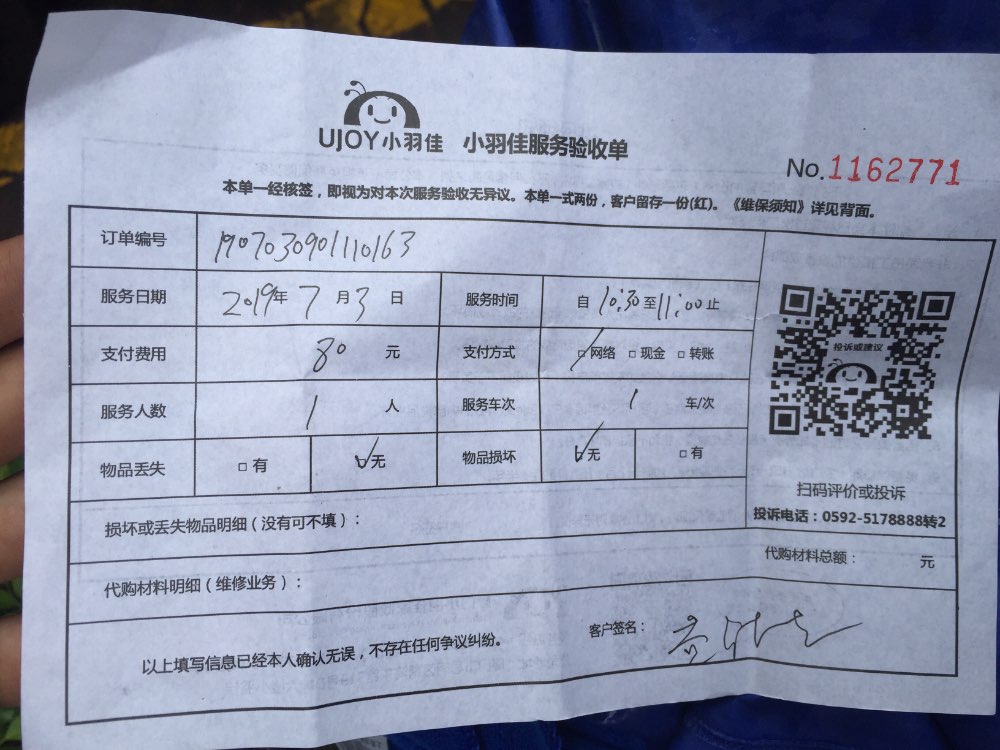 UJOY小羽佳 小羽佳服务验收单
No.1162771
本单一经核签，即视为对本次服务验收无异议。本单一式两份，客户留存一份(红)。《维保须知》详见背面。
订单编号 1907030901110163
服务日期 2019年7月3日 服务时间 自10:30至11:00止
支付费用 80元 支付方式 网络 现金 转账
服务人数 1人 服务车次 1车/次
物品丢失 有 无 物品损坏 无 有
投诉或建议
扫码评价或投诉
投诉电话：0592-5178888转2
损坏或丢失物品明细（没有可不填）：
代购材料明细（维修业务）： 代购材料总额： 元
以上填写信息已经本人确认无误，不存在任何争议纠纷。 客户签名：